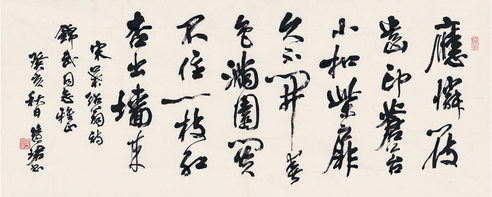 應憐屐
齒印蒼苔
小扣柴扉
久不開春
色滿園関
不住一枝紅
杏出墻來
宋葉紹翁詩
錦武同志雅正
癸亥秋日